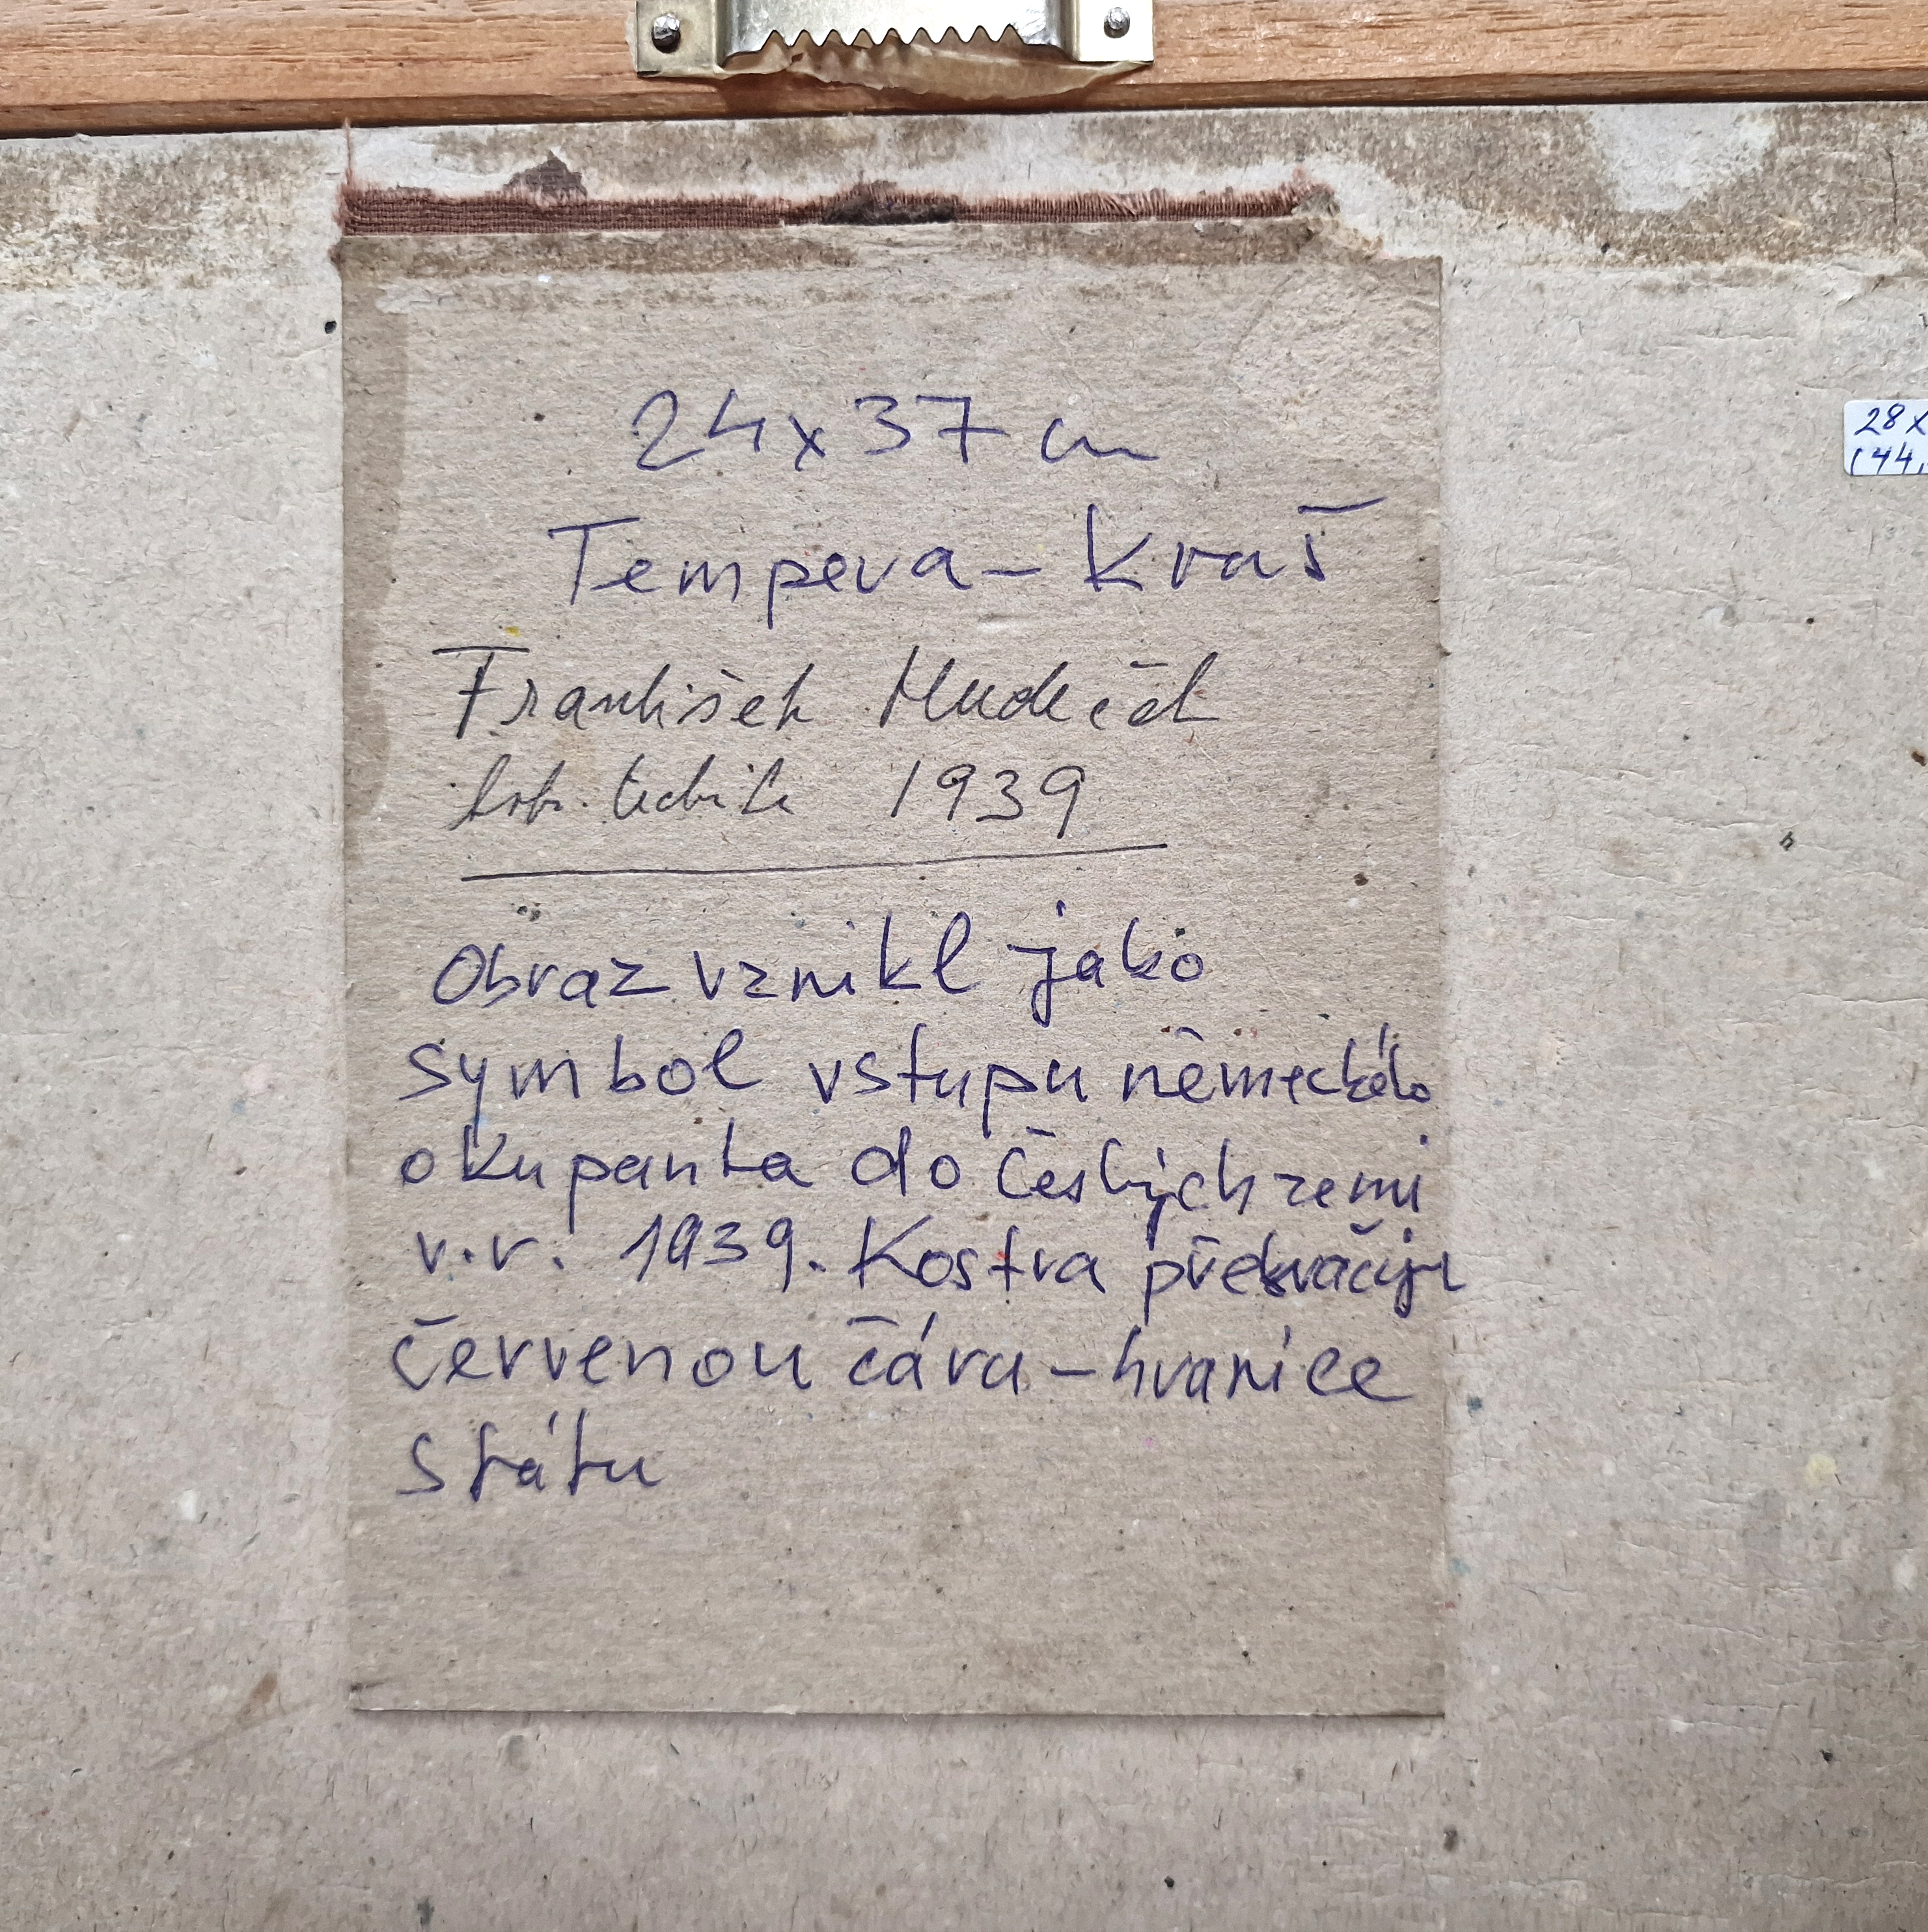 24x37 cm
Tempera – Kvaš
František Hudeček
komb. technika 1939
Obraz vznikl jako
symbol vstupu německého
okupanta do českých zemí
v.r. 1939. Kostra překračuje
červenou čáru – hranice
státu
28x
(44,